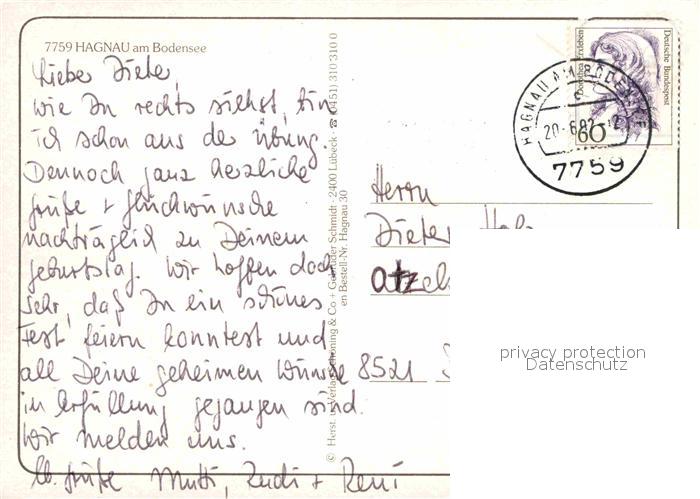 7759 HAGNAU am Bodensee
Lieber Dieter,
wie Du rechts siehst, bin
ich schon aus der Übung.
Dennoch ganz herzliche
Grüße + Glückwünsche
nachträglich zu Deinem
Geburtstag. Wir hoffen doch
sehr, daß Du ein schönes
Fest feiern konntest und
all Deine geheimen Wünsche
in Erfüllung gegangen sind.
Wir melden uns.
Lb. Grüße Mutti, Rudi + René
© Herst. u. Verlag Schöning & Co + Gebrüder Schmidt · 2400 Lübeck · ☎ (0451) 310310 0
en Bestell-Nr. Hagnau 30
Deutsche Bundespost
Dorothea Erxleben
60
HAGNAU AM BODENSEE
20.-6.92
7759
Herrn
Dieter
8521
privacy protection
Datenschutz